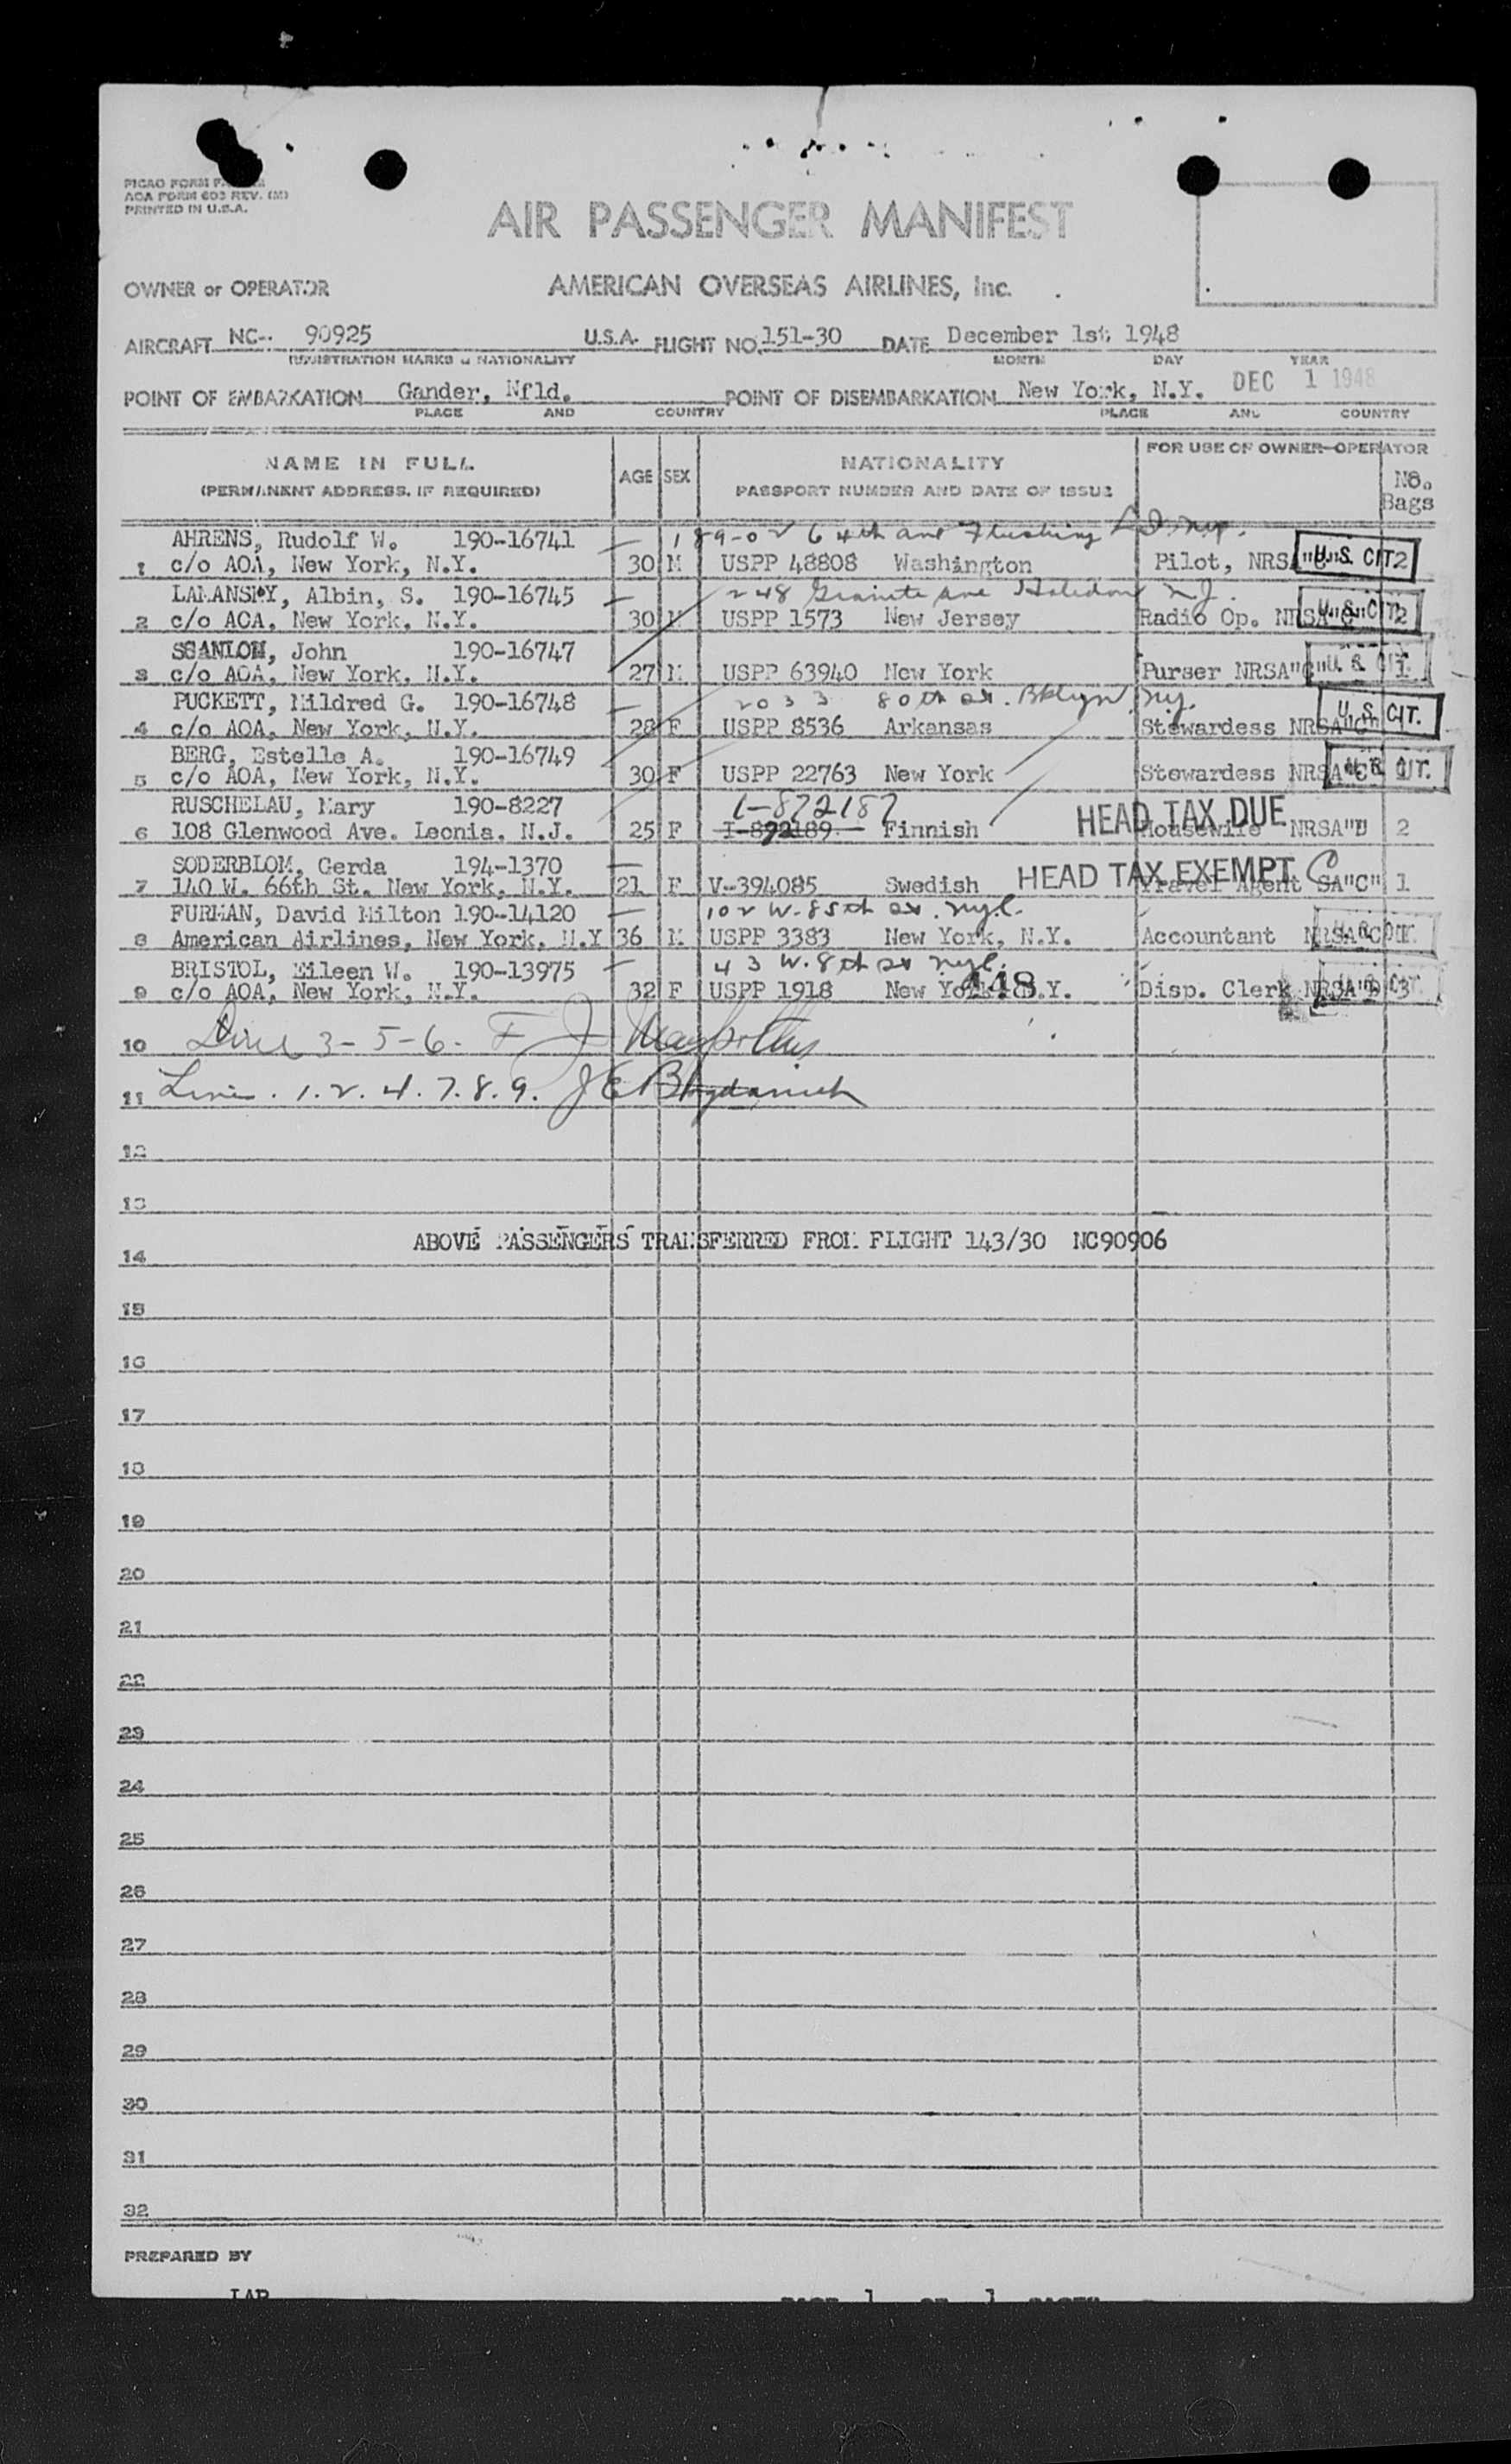 PICAO FORM
AOA FORM 603 REV. (M)
PRINTED IN U.S.A.
AIR PASSENGER MANIFEST
OWNER or OPERATOR AMERICAN OVERSEAS AIRLINES, Inc.
AIRCRAFT NC-- 90925 U.S.A. FLIGHT NO. 151-30 DATE December 1st 1948
REGISTRATION MARKS & NATIONALITY MONTH DAY YEAR
POINT OF EMBARKATION Gander, Nfld. POINT OF DISEMBARKATION New York, N.Y. DEC 1 1948
PLACE AND COUNTRY PLACE AND COUNTRY
NAME IN FULL AGE SEX NATIONALITY FOR USE OF OWNER-OPERATOR
(PERMANENT ADDRESS, IF REQUIRED) PASSPORT NUMBER AND DATE OF ISSUE No. Bags
AHRENS, Rudolf W. 190-16741 189-02 64th ave Flushing L.I. N.Y.
1 c/o AOA, New York, N.Y. 30 M USPP 48808 Washington Pilot, NRSA U.S. CIT. 2
Albin, S. 190-16745 248 Granite ave Haledon N.J.
2 c/o AOA, New York, N.Y. 30 M USPP 1573 New Jersey Radio Op. NRSA U.S. CIT. 2
SCANLON, John 190-16747
3 c/o AOA, New York, N.Y. 27 M USPP 63940 New York Purser NRSA"C" U.S. CIT. 1
PUCKETT, Mildred G. 190-16748 2033 80th st. Bklyn, ny.
4 c/o AOA, New York, N.Y. 28 F USPP 8536 Arkansas Stewardess NRSA"C" U.S. CIT.
BERG, Estelle A. 190-16749
5 c/o AOA, New York, N.Y. 30 F USPP 22763 New York Stewardess NRSA"C" U.S. CIT. 1
RUSCHELAU, Mary 190-8227 I-872187
6 108 Glenwood Ave. Leonia, N.J. 25 F I-892189 Finnish HEAD TAX DUE Housewife NRSA 2
SODERBLOM, Gerda 194-1370
7 140 W. 66th St. New York, N.Y. 21 F V-394085 Swedish HEAD TAX EXEMPT C Travel Agent SA"C" 1
FURMAN, David Milton 190-14120 102 W. 85th st. nyc.
8 American Airlines, New York, N.Y 36 M USPP 3383 New York, N.Y. Accountant NRSA"C" U.S. CIT.
BRISTOL, Eileen W. 190-13975 43 W. 8th st nyc.
9 c/o AOA, New York, N.Y. 32 F USPP 1918 New York, N.Y. 448 Disp. Clerk NRSA U.S. CIT. 3
10 Line 3-5-6. F J
11 Line. 1. 2. 4. 7. 8. 9. J E Bogdanich
12
13
ABOVE PASSENGERS TRANSFERRED FROM FLIGHT 143/30 NC90906
14
15
16
17
18
19
20
21
22
23
24
25
26
27
28
29
30
31
32
PREPARED BY